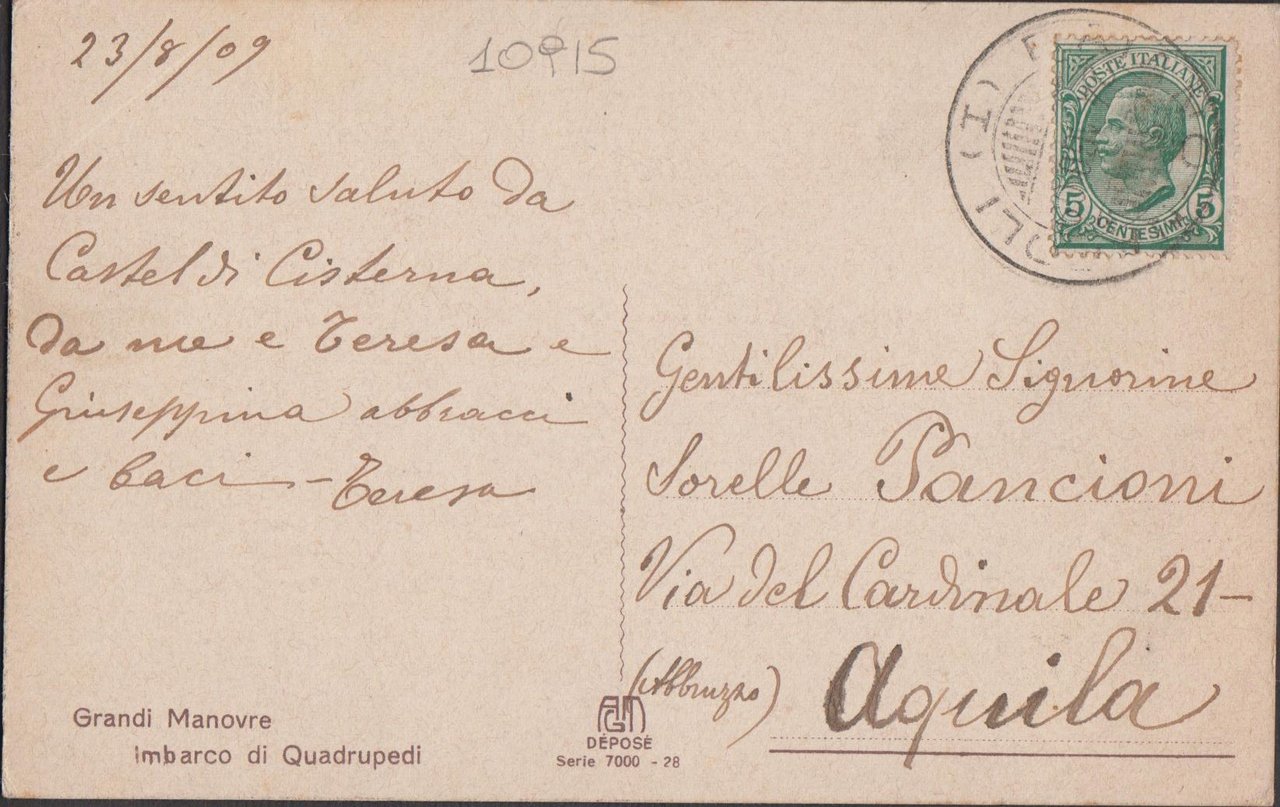 23/8/09
10915
POSTE ITALIANE
5 CENTESIMI 5
Un sentito saluto da
Castel di Cisterna,
da me e Teresa e
Giuseppina abbracci
e baci - Teresa
Gentilissime Signorine
Sorelle Pancioni
Via del Cardinale 21-
(Abbruzzo) Aquila
Grandi Manovre
Imbarco di Quadrupedi
DÉPOSÉ
Serie 7000 - 28